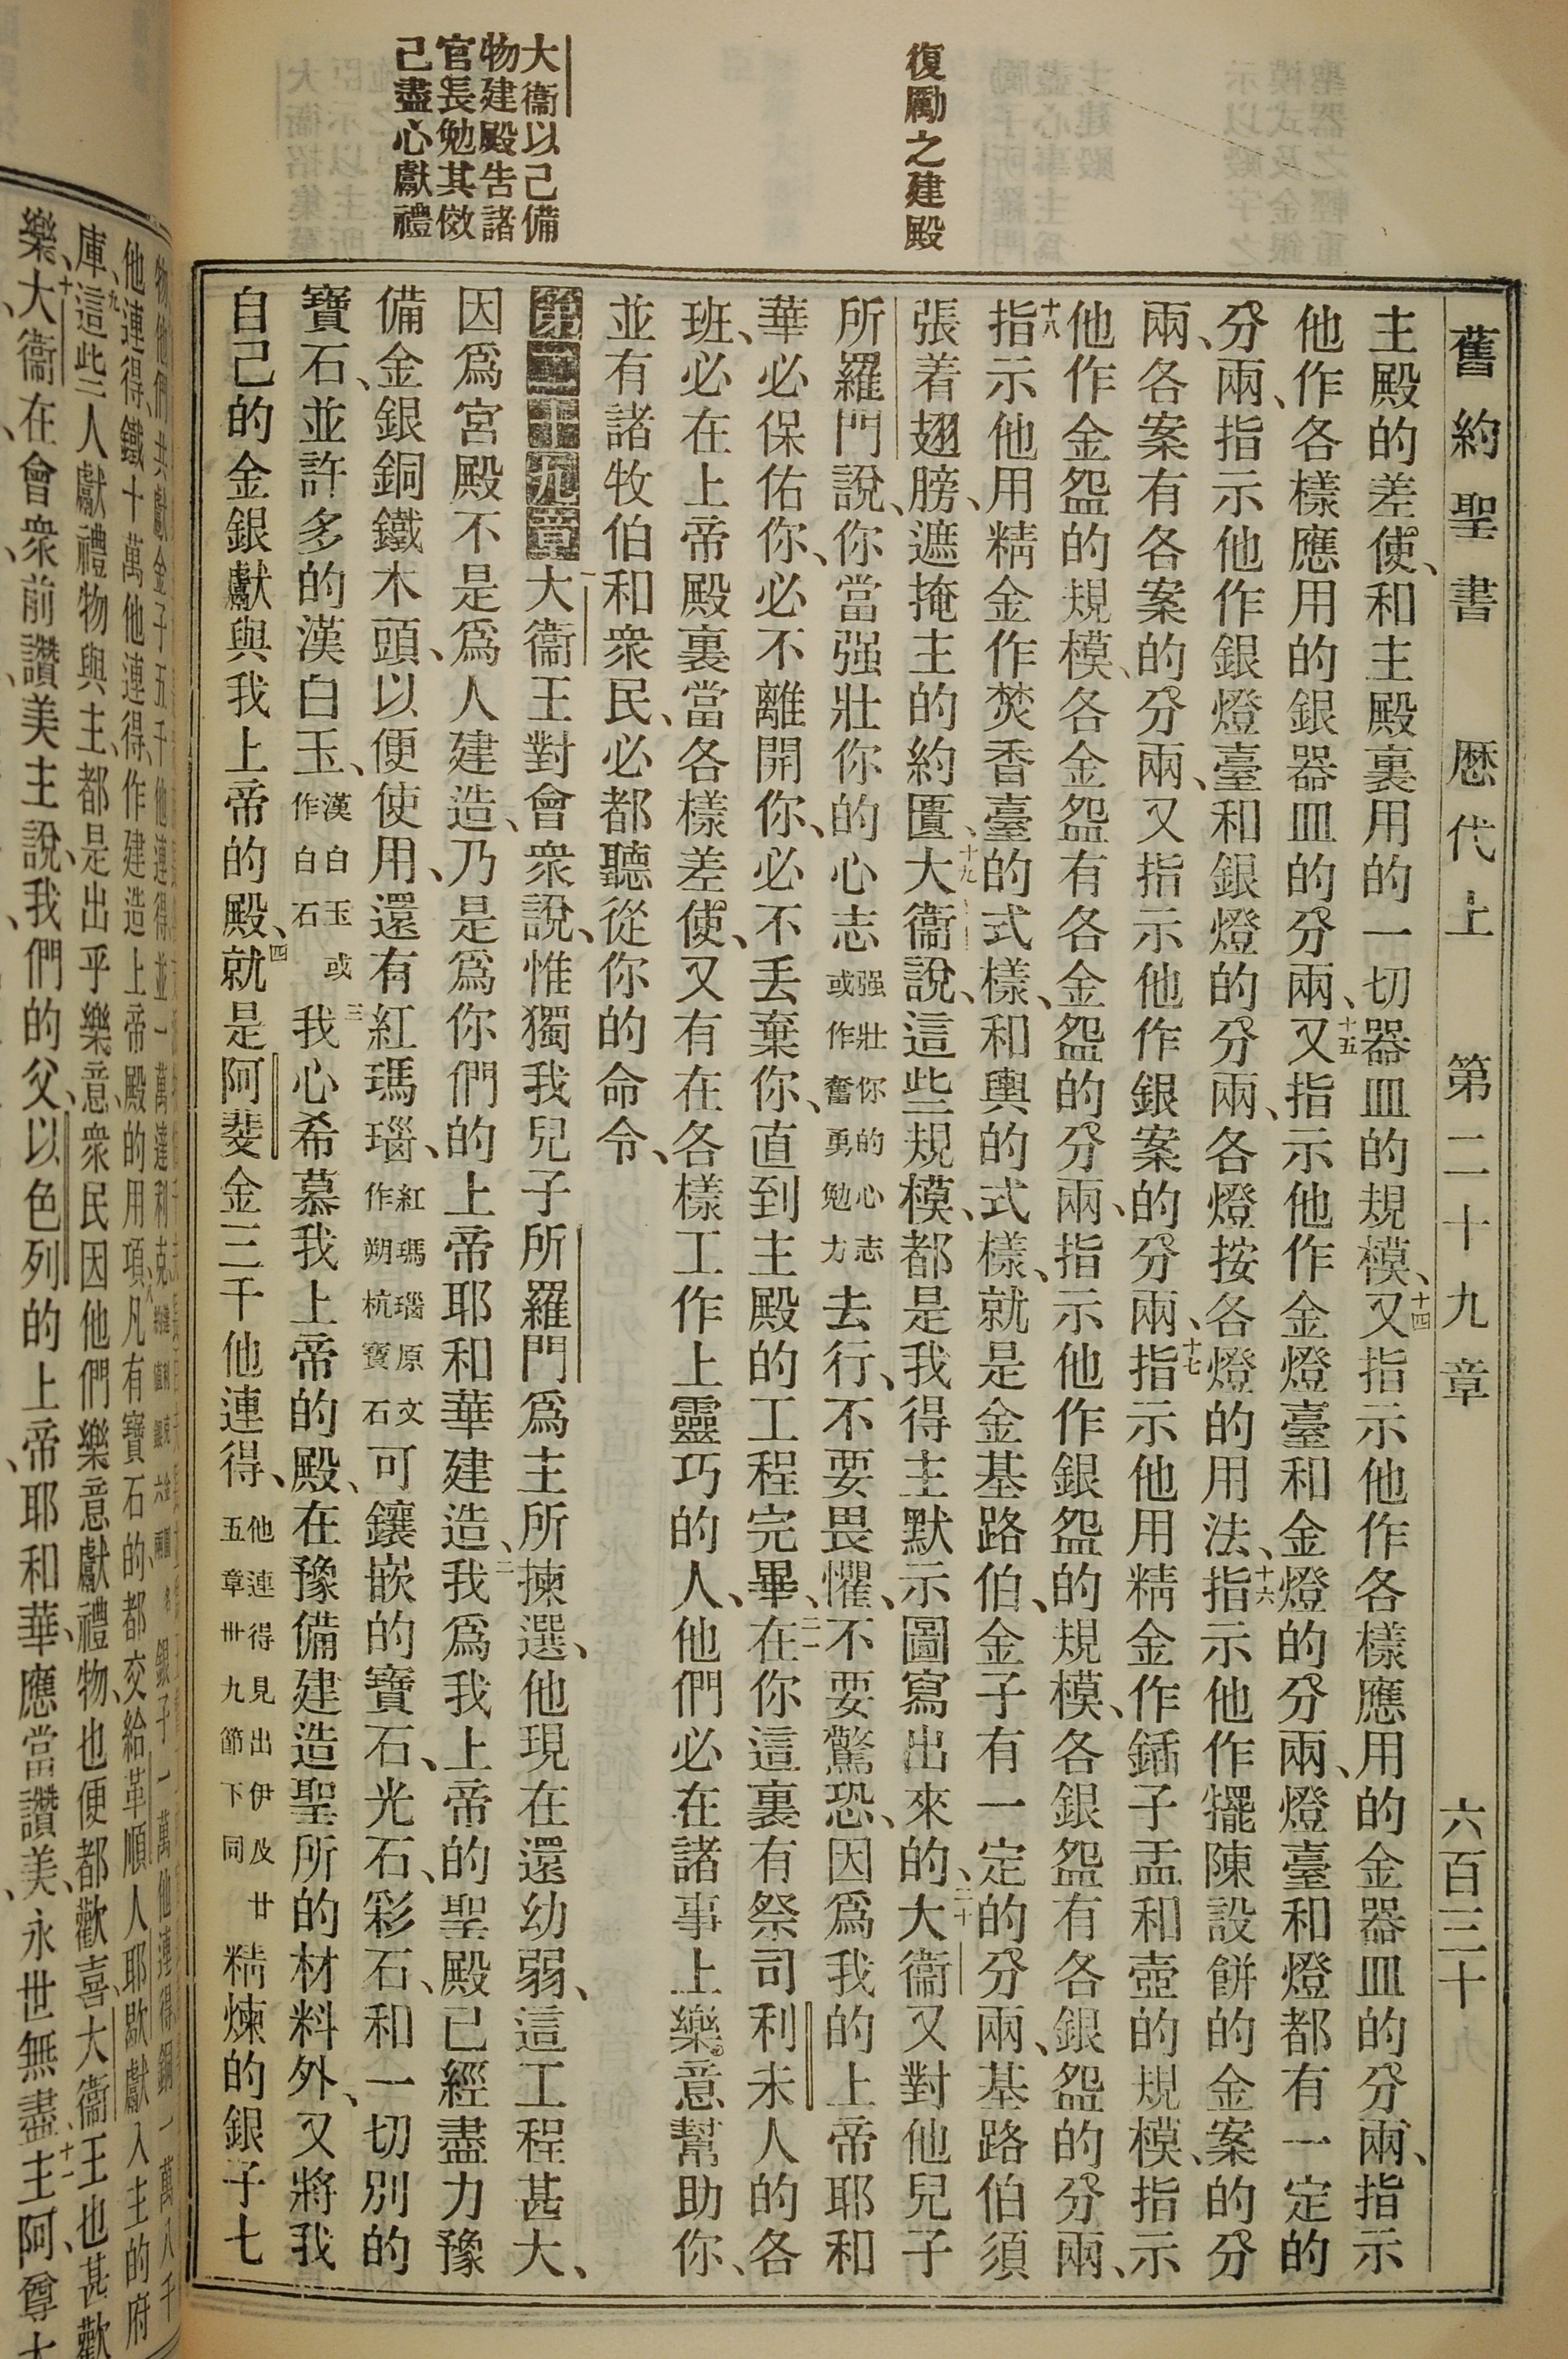 舊約聖書　歷代上　第二十九章　六百三十九
復勵之建殿
大衞以己備
物建殿告諸
官長勉其傚
己盡心獻禮
主殿的差使、和主殿裏用的一切器皿的規模、十四又指示他作各樣應用的金器皿的分兩、指示
他作各樣應用的銀器皿的分兩、十五又指示他作金燈臺和金燈的分兩、燈臺和燈都有一定的
分兩、指示他作銀燈臺和銀燈的分兩、各燈按各燈的用法、十六指示他作擺陳設餅的金案的分
兩、各案有各案的分兩、又指示他作銀案的分兩、十七指示他用精金作鍤子盂和壺的規模、指示
他作金盌的規模、各金盌有各金盌的分兩、指示他作銀盌的規模、各銀盌有各銀盌的分兩、
十八指示他用精金作焚香臺的式樣、和輿的式樣、就是金基路伯、金子有一定的分兩、基路伯須
張着翅膀、遮掩主的約匱、十九大衞說、這些規模、都是我得主默示圖寫出來的、二十大衞又對他兒子
所羅門說、你當强壯你的心志强壯你的心志或作奮勇勉力去行、不要畏懼、不要驚恐、因爲我的上帝耶和
華必保佑你、必不離開你、必不丟棄你、直到主殿的工程完畢、二一在你這裏有祭司利未人的各
班、必在上帝殿裏當各樣差使、又有在各樣工作上靈巧的人、他們必在諸事上樂意幫助你、
並有諸牧伯和衆民、必都聽從你的命令、
第二十九章一大衞王對會衆說、惟獨我兒子所羅門爲主所揀選、他現在還幼弱、這工程甚大、
因爲宮殿不是爲人建造、乃是爲你們的上帝耶和華建造、二我爲我上帝的聖殿已經盡力豫
備金銀銅鐵木頭、以便使用、還有紅瑪瑙、紅瑪瑙原文作朔杭寶石可鑲嵌的寶石、光石、彩石、和一切別的
寶石、並許多的漢白玉、漢白玉或作白石三我心希慕我上帝的殿、在豫備建造聖所的材料外、又將我
自己的金銀獻與我上帝的殿、四就是阿斐金三千他連得、他連得見出伊及廿五章卅九節下同精煉的銀子七
他連得、鐵十萬他連得、作建造上帝殿的用項、八凡有寶石的、都交給革順人耶歇、獻入主的府
庫、九這些人獻禮物與主、都是出乎樂意、衆民因他們樂意獻禮物、也便都歡喜、大衞王也甚歡
樂、十大衞在會衆前讚美主說、我們的父、以色列的上帝耶和華、應當讚美、永世無盡、十一主阿、尊大